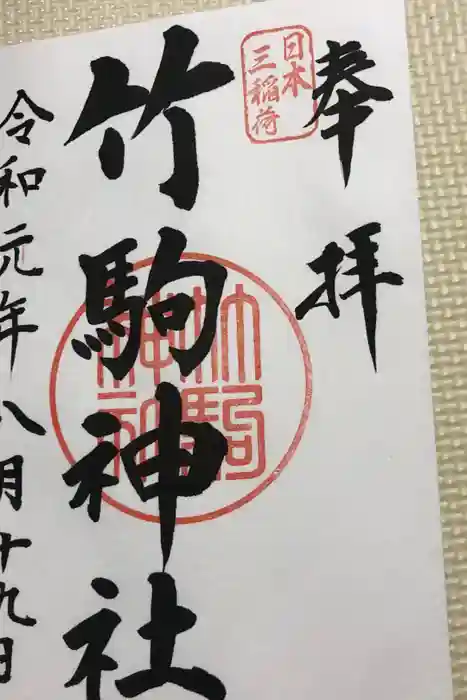 奉拝
日本
三稲荷
竹駒神社
竹駒
神社
令和元年八月十九日